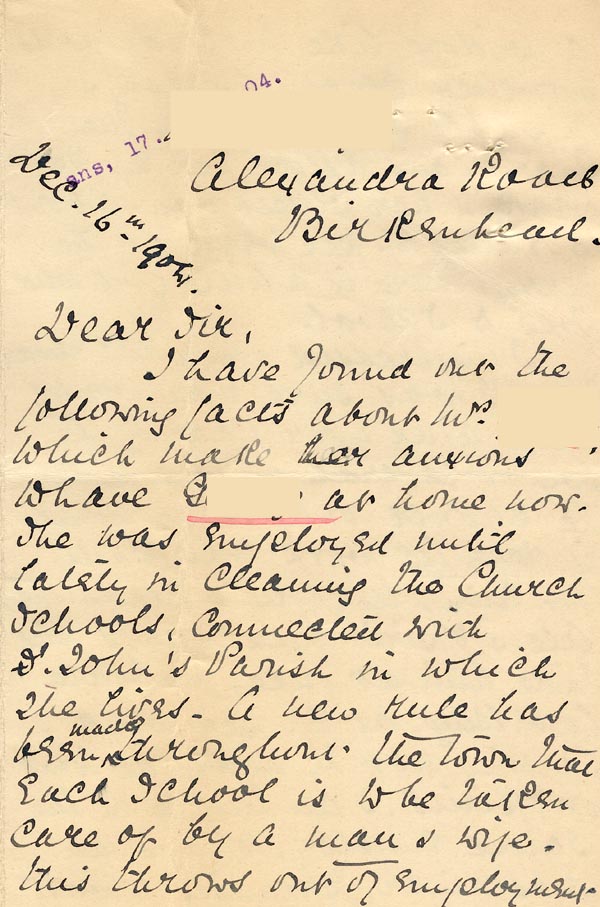 ans, 17. 04.
Dec. 16th 1904.
Alexandra Road
Birkenhead.
Dear Sir,
I have found out the
following facts about Mrs
which make her anxious
to have at home now.
She was employed until
lately in cleaning the Church
Schools, connected with
St. John's Parish in which
she lives. A new rule has
been made throughout the town that
each School is to be taken
care of by a man & wife.
This throws out of employment